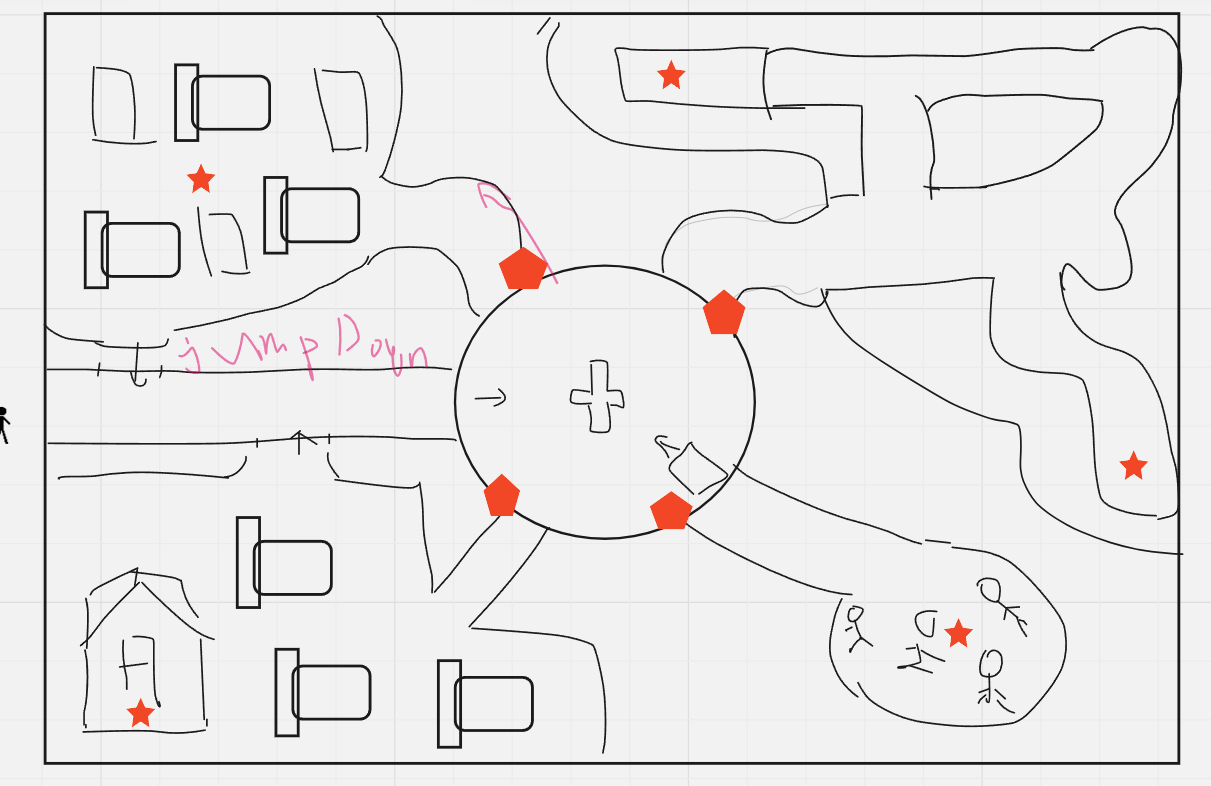 jump Down